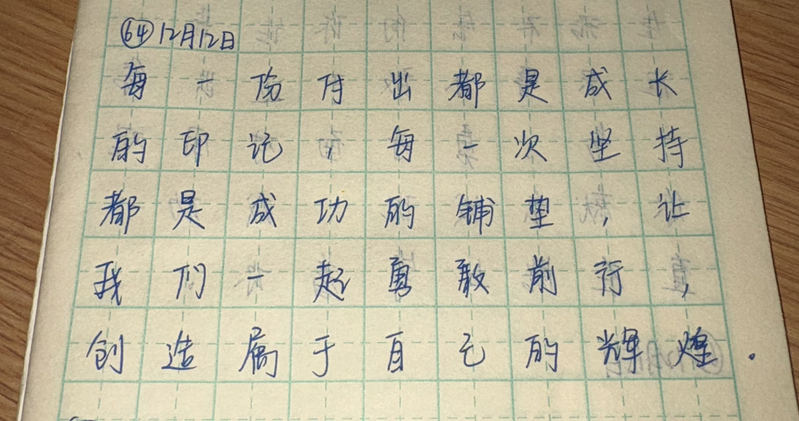 64 12月12日
每一份付出都是成长
的印记,每一次坚持
都是成功的铺垫,让
我们一起勇敢前行,
创造属于自己的辉煌.